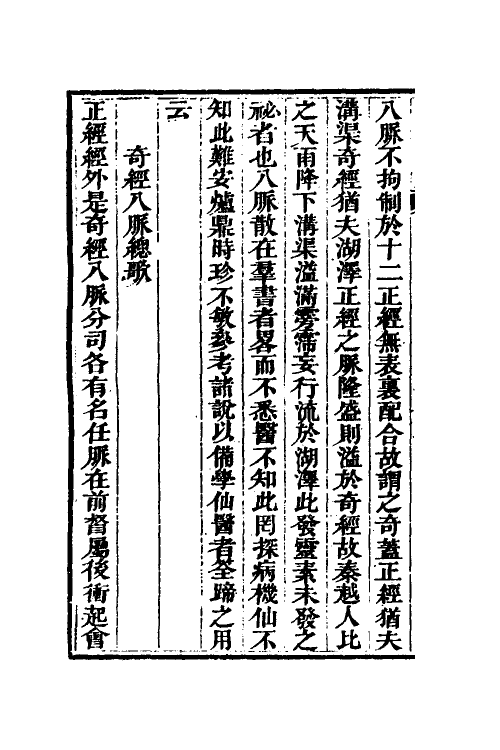 八脈不拘制於十二正經無表裏配合故謂之奇蓋正經猶夫
溝渠奇經猶夫湖澤正經之脈隆盛則溢於奇經故秦越人比
之天雨降下溝渠溢滿霶霈妄行流於湖澤此發靈素未發之
祕者也八脈散在羣書者畧而不悉醫不知此罔探病機仙不
知此難安爐鼎時珍不敏參考諸說以備學仙醫者筌蹄之用
云
奇經八脈總歌
正經經外是奇經八脈分司各有名任脈在前督屬後衝起會